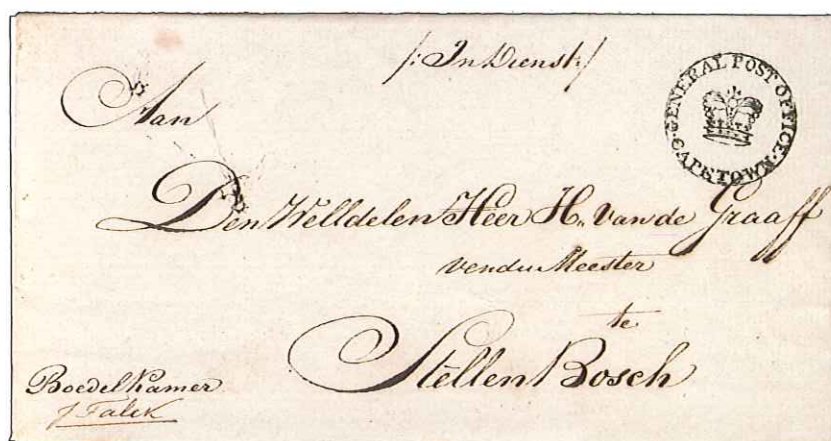 /: In Dienst /
GENERAL POST OFFICE
CAPETOWN
Aan
Den WelEdelen Heer H. van de Graaff
vendu Meester
te
Stellen Bosch
Boedel Kamer
J Falck